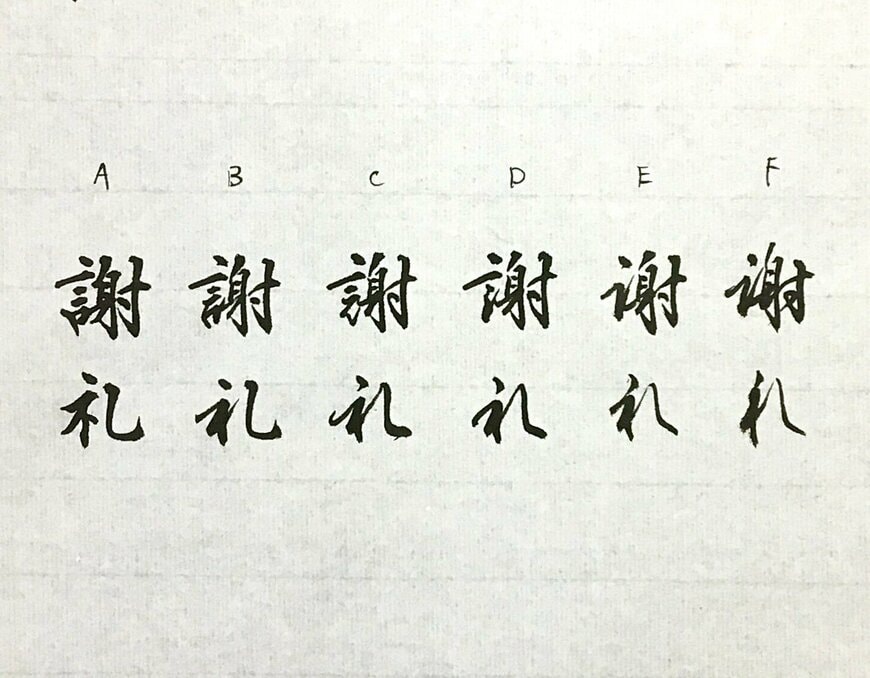 A B C D E F
謝 謝 謝 謝 謝 謝
礼 礼 礼 礼 礼 礼